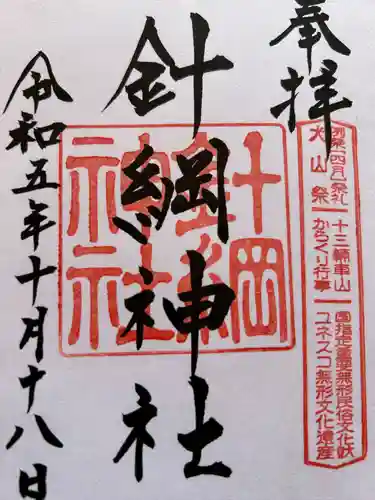 奉拝
針綱神社
令和五年十月十八日
針綱神社
例祭「四月」祭礼
犬山祭
十三輌車山
からくり行事
国指定重要無形民俗文化財
ユネスコ無形文化遺産